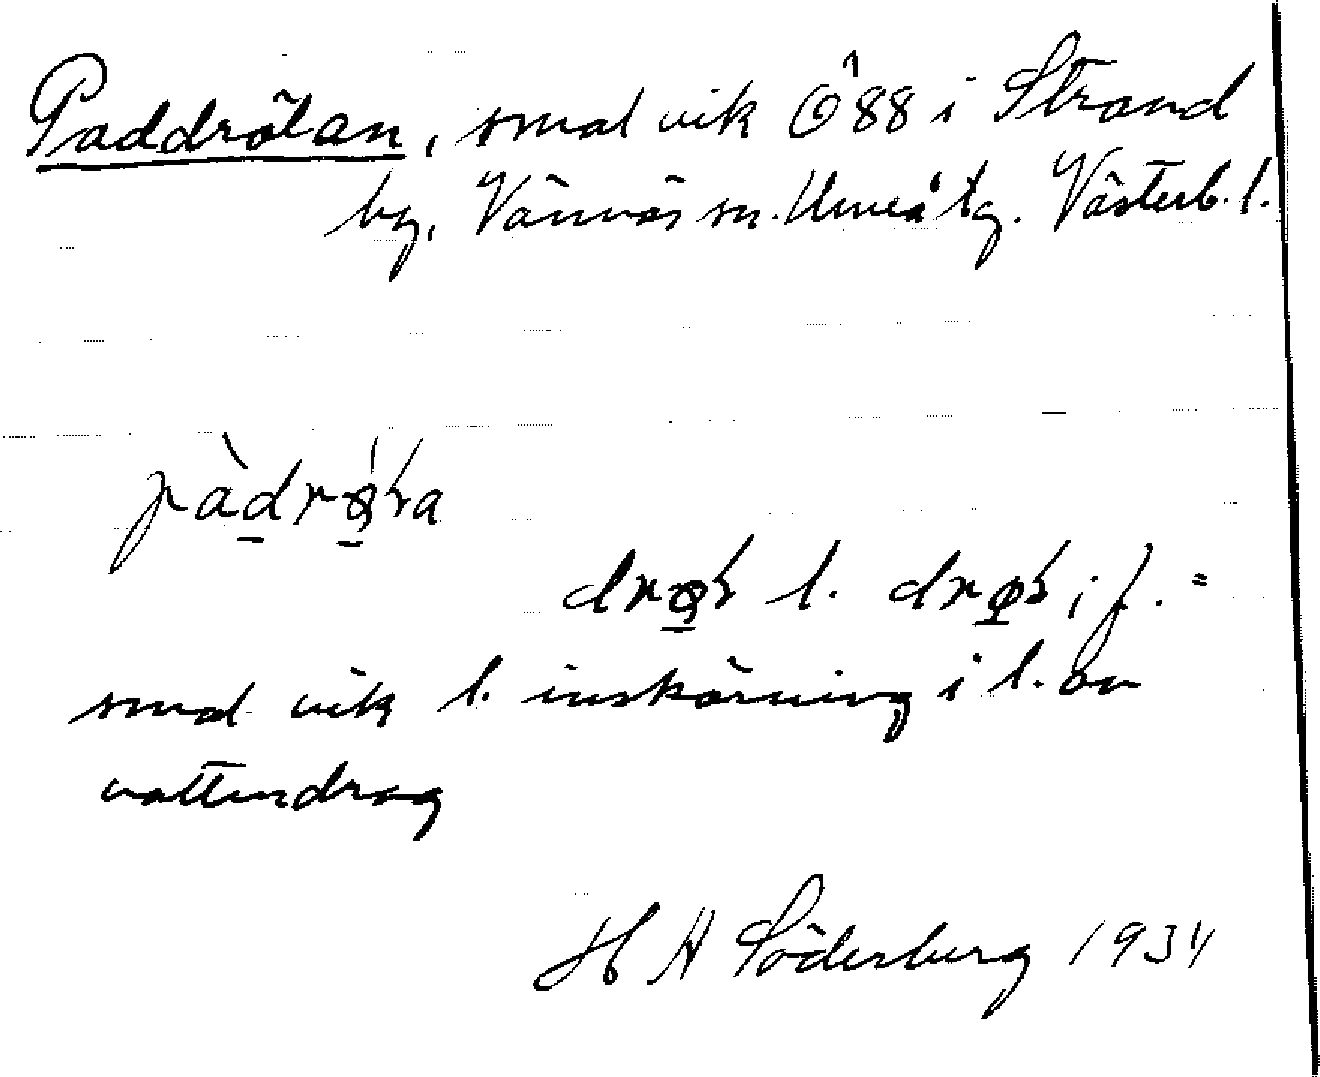 Paddrölan, smal vik Ö 88 i Strand
by, Vännäs sn. Umeå tg. Västerb. l.
l. ; f. =
smal vik l. inskärning i l. av
vattendrag
H A Söderberg 1934